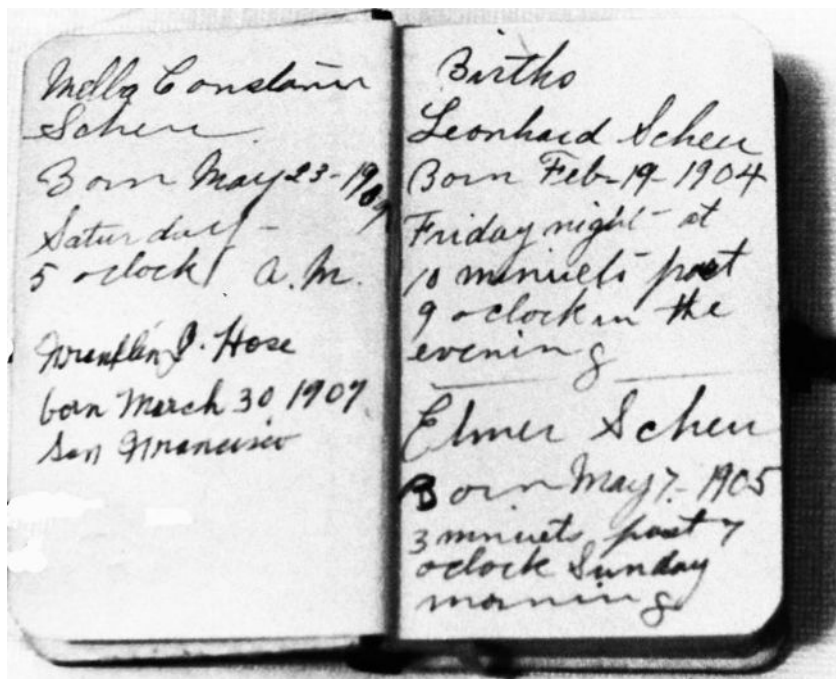 Melba Constance
Scheu
Born May 23-
Saturday -
5 oclock A.M.
Franklin Hose
born March 30 1907
San Francisco
Births
Leonhard Scheu
Born Feb-19-1904
Friday night - at
10 minuets past
9 oclock in the
evening
Elmer Scheu
Born May 7-1905
3 mnuets past 7
oclock Sunday
morning